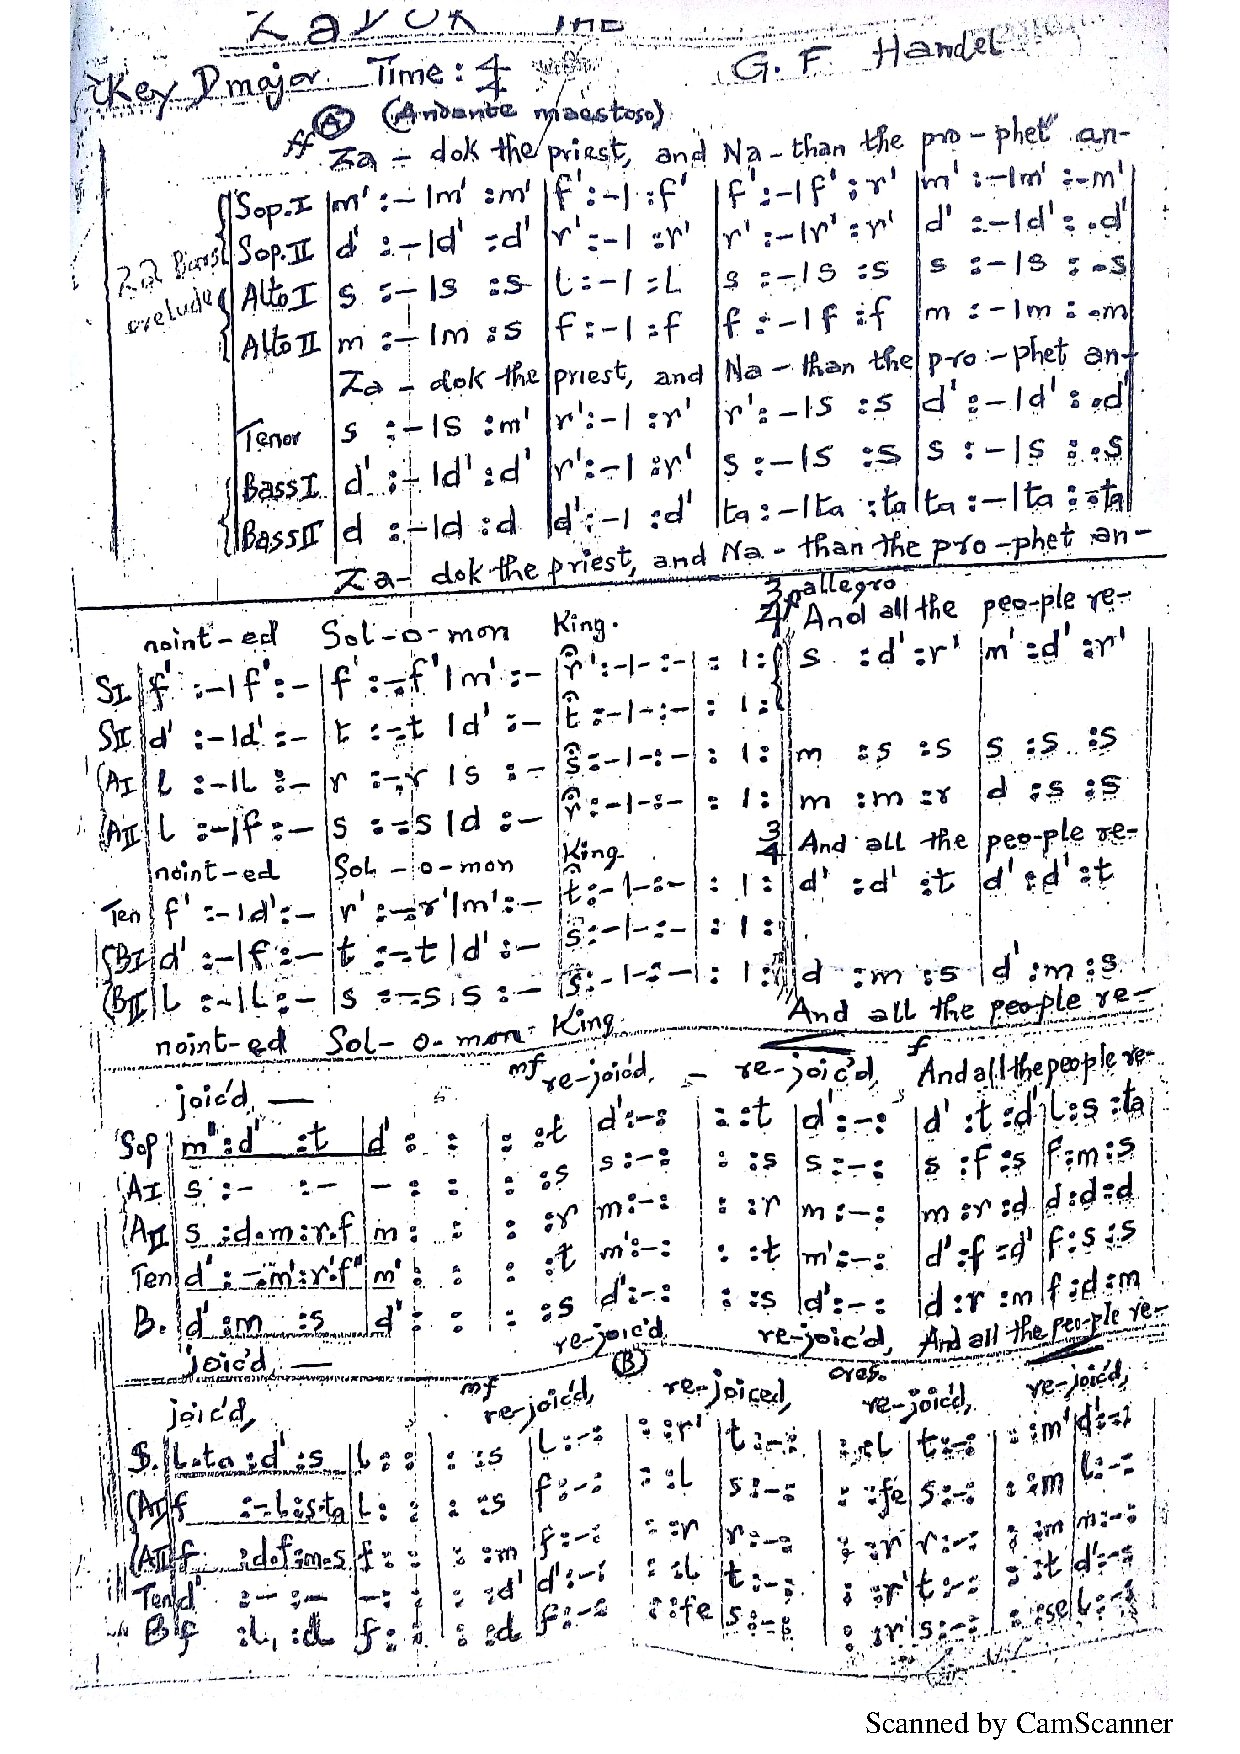 Key D major. Time: 4/4
G. F Handel
ff (A) (Andante maestoso)
Za - dok the priest, and Na - than the pro - phet an-
22 Bars prelude
Sop. I | m' :- | m' : m' | f' :- | : f' | f' :- | f' : r' | m' :- | m' :-. m'
Sop. II | d' :- | d' : d' | r' :- | : r' | r' :- | r' : r' | d' :- | d' : . d'
Alto I | s :- | s : s | l :- | : l | s :- | s : s | s :- | s : -. s
Alto II | m :- | m : s | f :- | : f | f :- | f : f | m :- | m : -. m
Za - dok the priest, and Na - than the pro - phet an-
Tenor | s :- | s : m' | r' :- | : r' | r' :- | s : s | d' :- | d' : . d'
Bass I | d' :- | d' : d' | r' :- | : r' | s :- | s : s | s :- | s : . s
Bass II | d :- | d : d | d' :- | : d' | ta :- | ta : ta | ta :- | ta : -. ta
Za - dok the priest, and Na - than the pro - phet an-
noint - ed Sol - o - mon King. 3/4 allegro And all the peo - ple re-
SI | f' :- | f' :- | f' :-. f' | m' :- | r' :- | - :- | : | : | s : d' : r' | m' : d' : r'
SII | d' :- | d' :- | t :-. t | d' :- | t :- | - :- | : | :
AI | l :- | l :- | r :-. r | s :- | s :- | - :- | : | : | m : s : s | s : s : s
AII | l :- | f :- | s :-. s | d :- | r :- | - :- | : | : | m : m : r | d : s : s
noint - ed Sol - o - mon King. 3/4 And all the peo - ple re-
Ten | f' :- | d' :- | r' :-. r' | m' :- | t :- | - :- | : | : | d' : d' : t | d' : d' : t
BI | d' :- | f :- | t :-. t | d' :- | s :- | - :- | : | :
BII | l :- | l :- | s :-. s | s :- | s :- | - :- | : | : | d : m : s | d' : m : s
And all the people re-
noint - ed Sol - o - mon King.
joic'd, — mf re-joic'd, — re-joic'd, f And all the people re-
Sop | m' : d' : t | d' : : | : : t | d' :- : | : : t | d' :- : | d' : t : d' | l : s : ta
AI | s :- :- | - : : | : : s | s :- : | : : s | s :- : | s : f : s | f : m : s
AII | s : d . m : r . f | m : : | : : r | m :- : | : : r | m :- : | m : r : d | d : d : d
Ten | d' :-. m' : r' . f' | m' : : | : : t | m' :- : | : : t | m' :- : | d' : f : d' | f : s : s
B. | d' : m : s | d' : : | : : s | d' :- : | : : s | d' :- : | d : r : m | f : d : m
joic'd, — re-joic'd re-joic'd, And all the peo-ple re-
(B)
joic'd, mf re-joic'd, re-joiced, cres. re-joic'd, re-joic'd,
S. | l . ta : d' : s | l : : | : : s | l :- : | : : r' | t :- : | : : l | t :- : | : : m' | d' :- :
AI | f :-. l : s . ta | l : : | : : s | f :- : | : : l | s :- : | : : fe | s :- : | : : m | l :- :
AII | f : d . f : m . s | f : : | : : m | f :- : | : : r | r :- : | : : r | r :- : | : : m | m :- :
Ten | d' :- :- | - : : | : : d' | d' :- : | : : l | t :- : | : : r' | t :- : | : : t | d' :- :
B | f : l, : d | f : : | : : d | f :- : | : : fe | s :- : | : : r' | s :- : | : : se | l :- :
Scanned by CamScanner